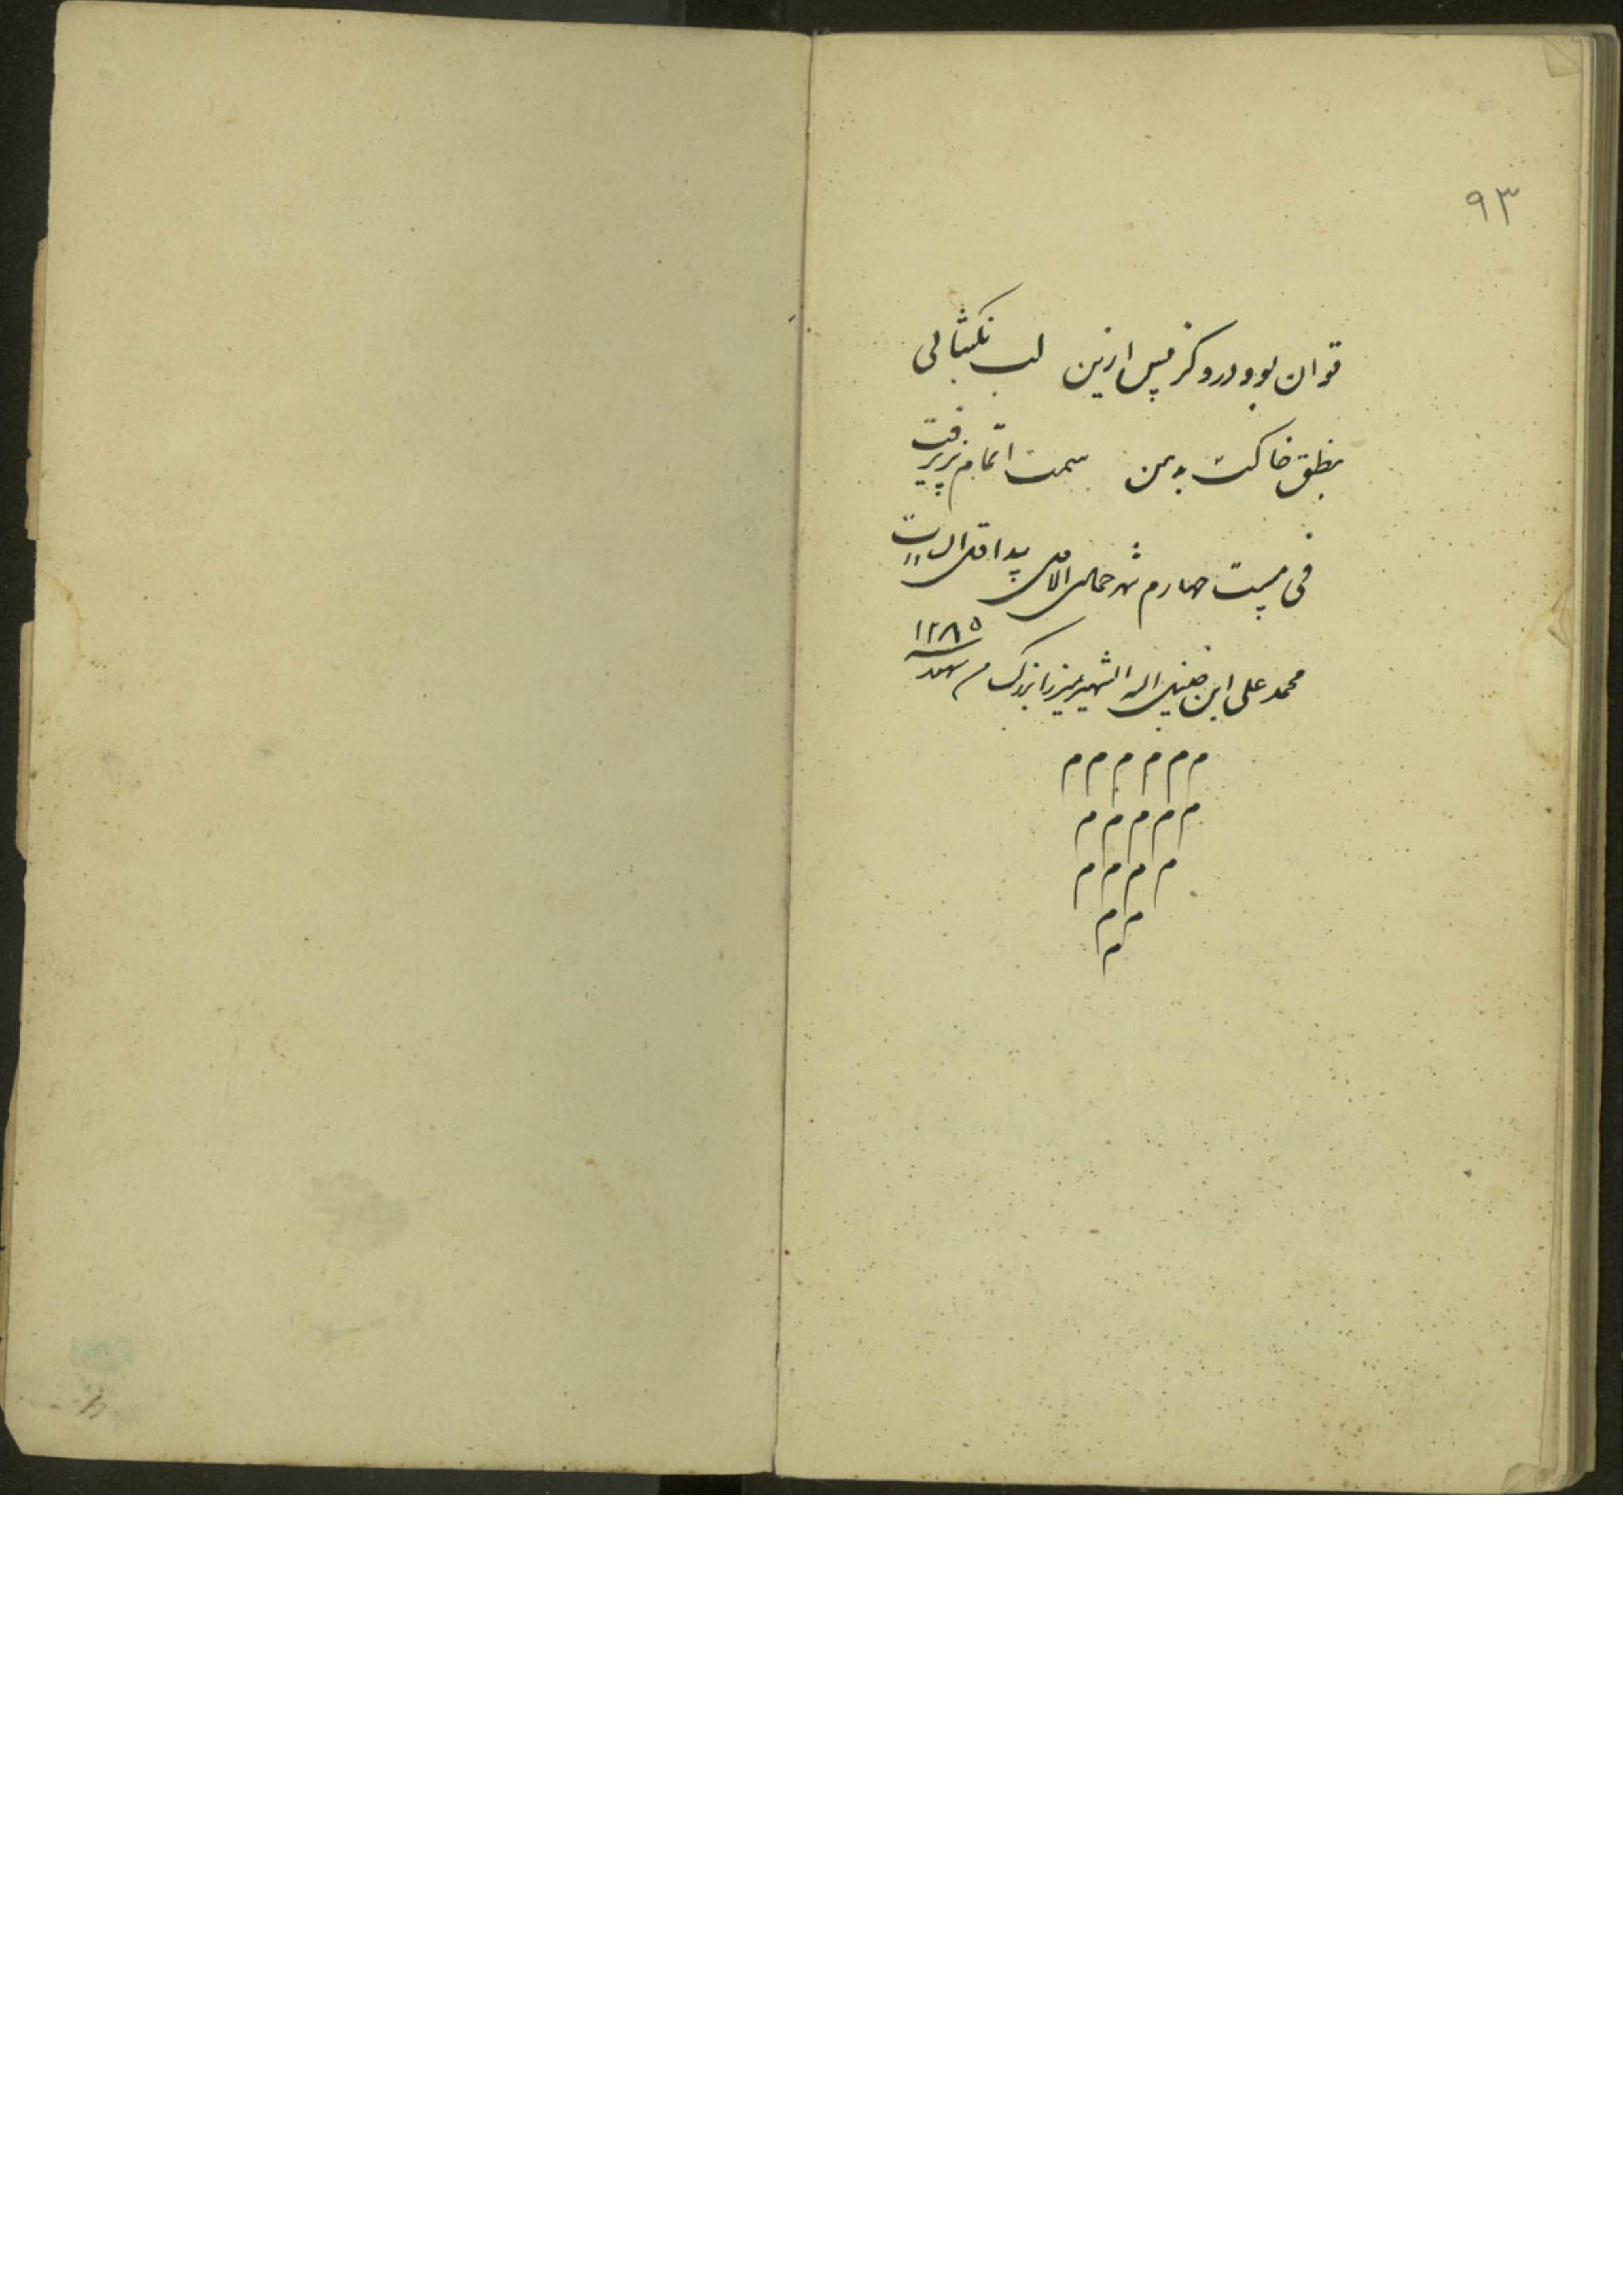 ۹۳
توان بود در و کز پس ازین لب نگشائی
بنطق خاکت بدهن سمت اتمام پزیرفت
فی بیست چهارم شهر جمادی الاول ید اقل السادات
محمد علی ابن الله الشهیر بمیرزا بزرگ م سنه ۱۲۸۵
م م م م م م
م م م م م
م م م م
م م
م